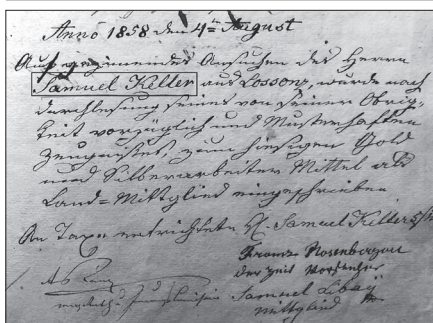 Anno 1858 den 4ten August
Auf geziemendes Ansuchen des Herrn
Samuel Keller aus Lossonz, wurde nach
durchlesung seines von seiner Obrig-
keit vorzüglich und Musterhaften
Zeugnisses, zum hiesigen Gold
und Silberarbeiter Mittel als
Land=Mittglied eingeschrieben
An Taxen entrichtete H. Samuel Keller 5/
Franz Rosenberger
der Zeit Vorsteher
Samuel Libay
mittglied